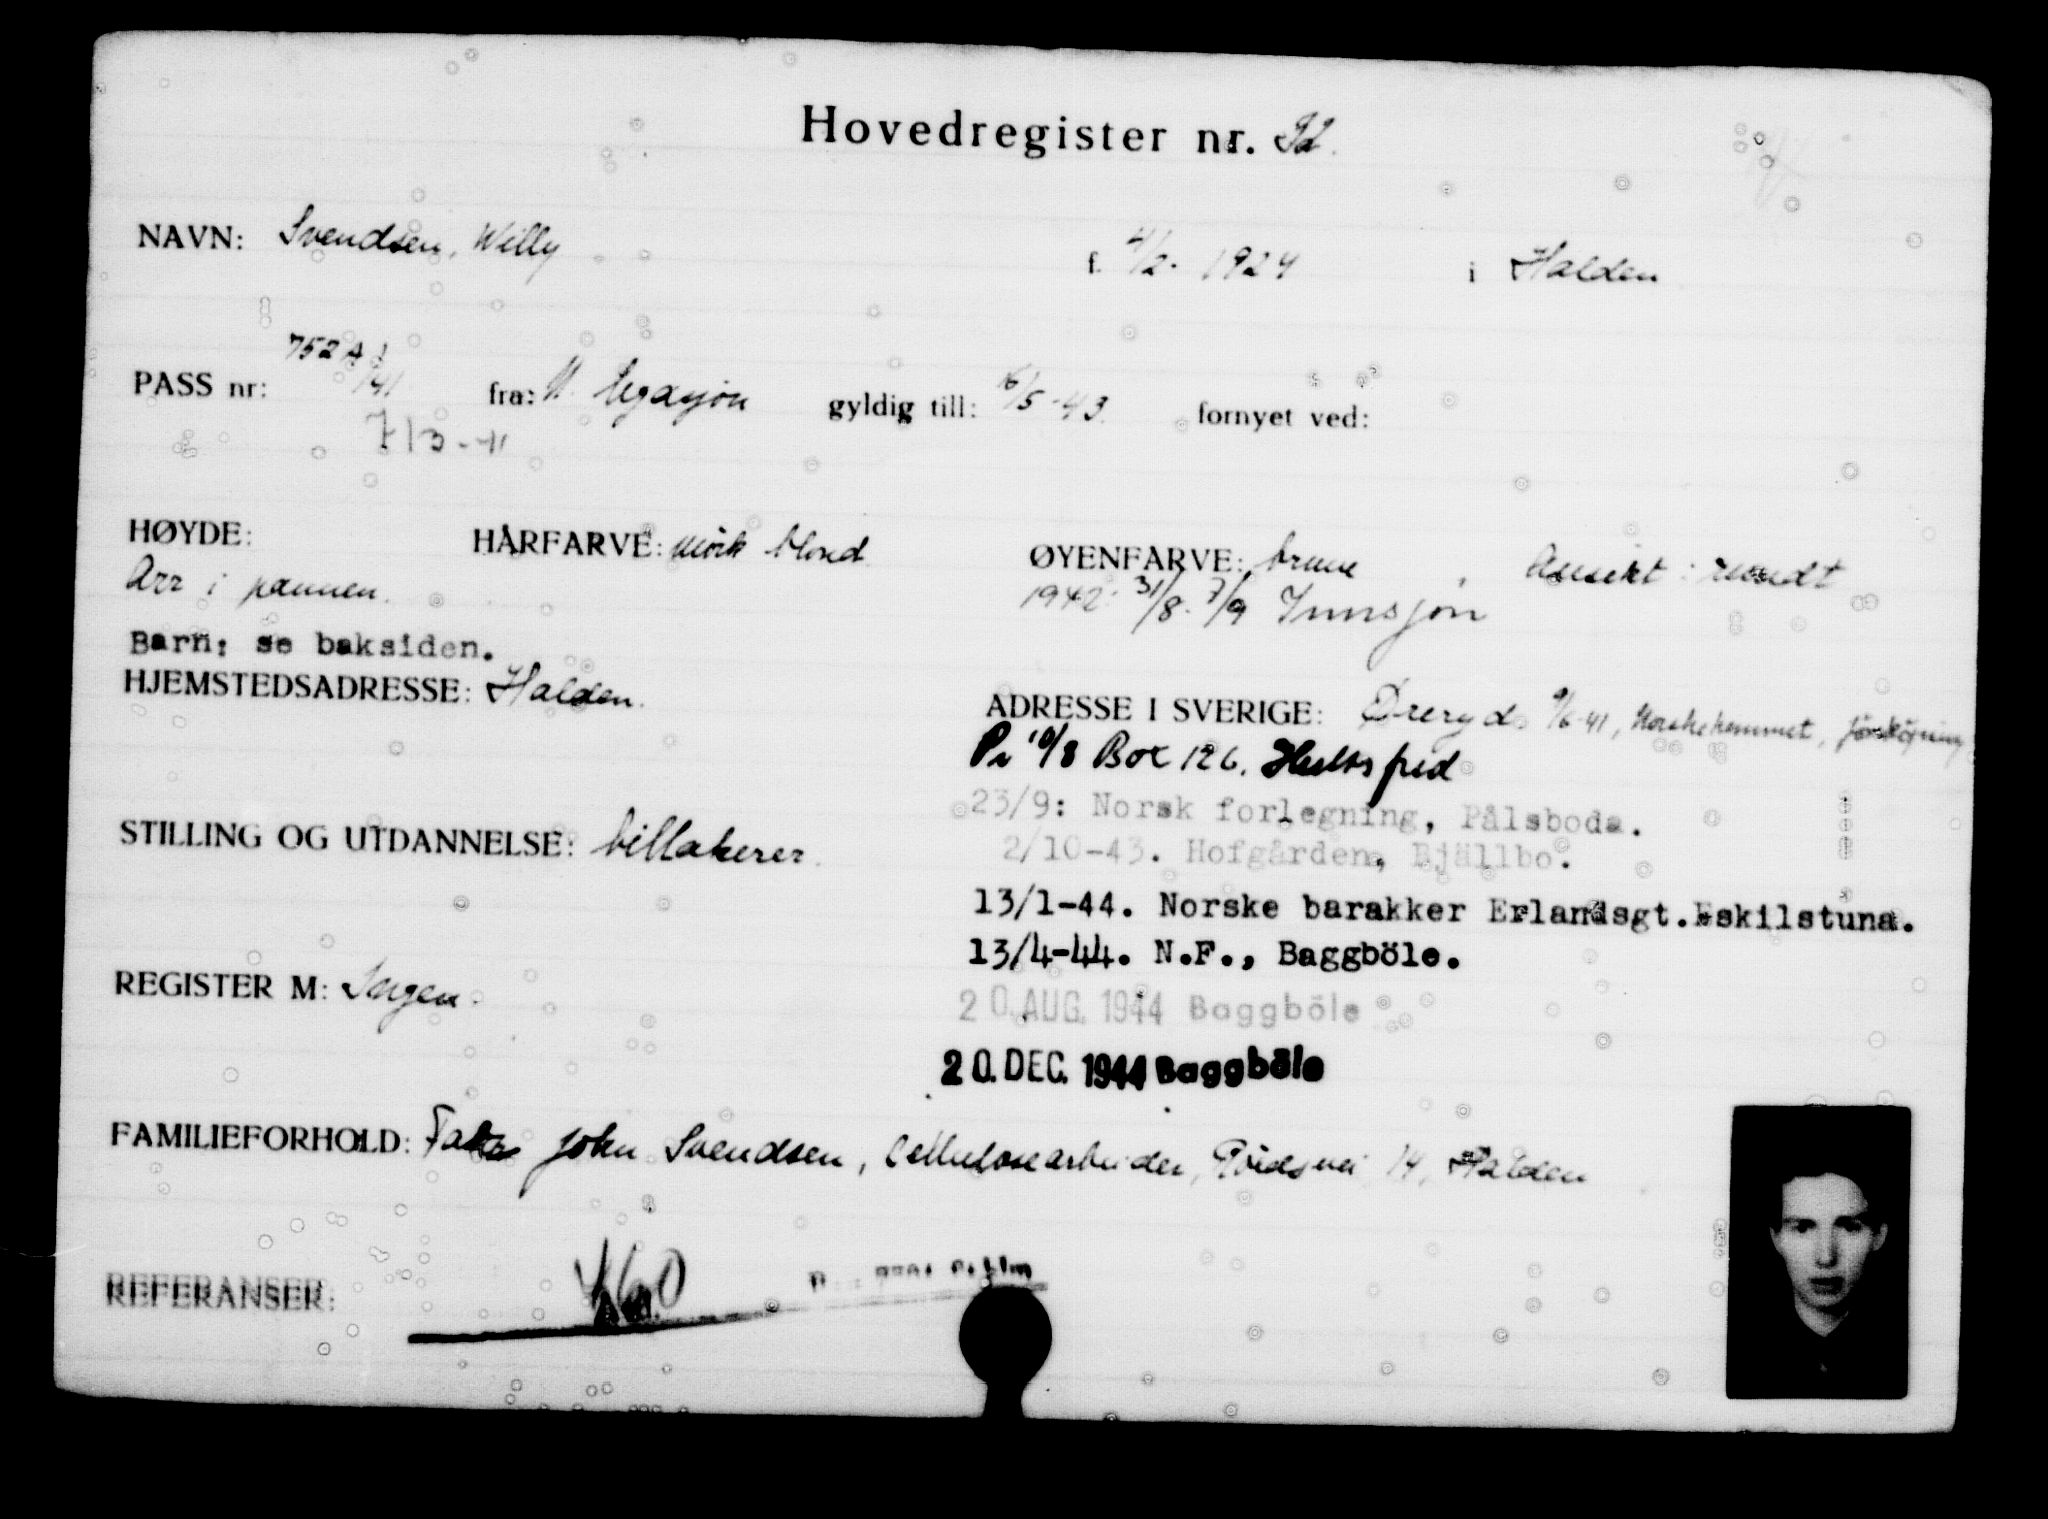 Hovedregister nr. 92.
NAVN: Svendsen, Willy f. 4/2. 1924 i Halden
PASS nr: 752 A/41 fra: N. legasjon gyldig till: 16/5-43. fornyet ved:
713-41
HØYDE: HÅRFARVE: mörk blond ØYENFARVE: brune, Ansikt: rundt
Arr i pannen. 1942: 31/8. 7/9
Barn: se baksiden.
HJEMSTEDSADRESSE: Halden. ADRESSE I SVERIGE: Øreryd. 9/6-41, Norskehemmet, Jönköping
Pr 10/8 Box 126. Hultsfred
23/9: Norsk forlegning, Pålsboda.
STILLING OG UTDANNELSE: billakerer.
2/10-43. Hofgården, Bjällbo.
13/1-44. Norske barakker Erlandsgt.Eskilstuna.
13/4-44. N.F., Baggböle.
REGISTER M: Ingen.
20. AUG. 1944 Baggböle
20. DEC. 1944 Baggböle
FAMILIEFORHOLD: Fader John Svendsen, Cellulosearbeider, 14, Halden
REFERANSER: 460